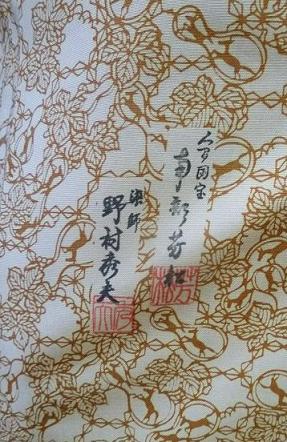 人間国宝
南部芳松
染師
野村秀夫